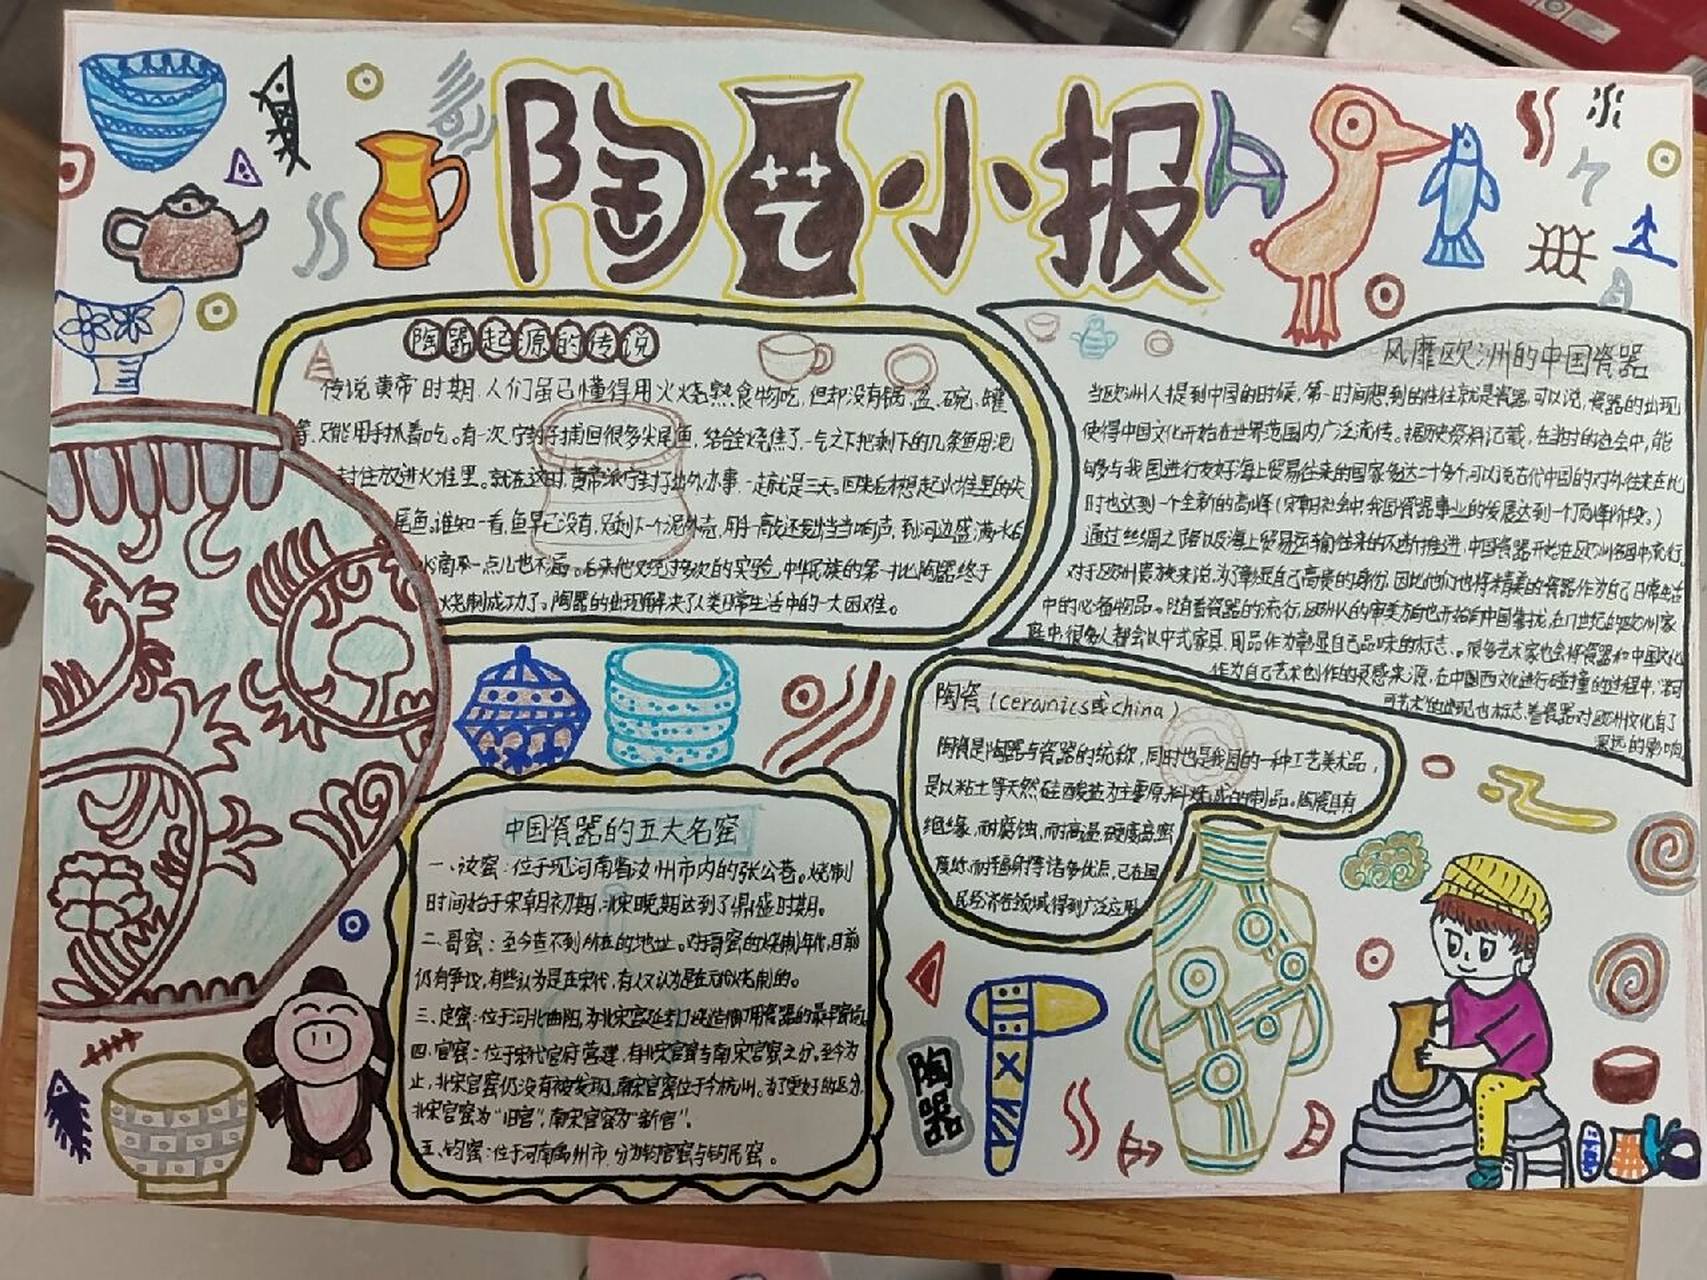 陶艺小报
陶器起源的传说
传说黄帝时期,人们虽已懂得用火烧熟食物吃,但却没有锅、盆、碗、罐
等,只能用手抓着吃。有一次,宁封子捕回很多尖尾鱼,结全烧焦了,一气之下把剩下的几条鱼用泥
封住放进火堆里。就在这时,黄帝派宁封子出外办事,一走就是三天。回来后才想起火堆里的尖
尾鱼。谁知一看,鱼早已没有,只剩下一个泥外壳,用手一敲还发出当当响声,到河边盛满水后
水滴不一点儿也不漏。后来他又经过多次的实验,中华民族的第一批陶器终于
烧制成功了。陶器的出现解决了人类日常生活中的一大困难。
风靡欧洲的中国瓷器
当欧洲人提到中国的时候,第一时间想到的往往就是瓷器,可以说,瓷器的出现
使得中国文化开始在世界范围内广泛流传。据历史资料记载,在当时的社会中,能
够与我国进行友好海上贸易往来的国家多达二十多个,可以说古代中国的对外往来在此
时也达到一个全新的高峰(宋朝社会中我国瓷器事业的发展达到一个顶峰阶段。)
通过丝绸之路以及海上贸易运输往来的不断推进,中国瓷器开始在欧洲各国中流行。
对于欧洲贵族来说,为了彰显自己高贵的身份,因此他们也将精美的瓷器作为自己日常生活
中的必备物品。随着瓷器的流行,欧洲人的审美方向也开始向中国靠拢,在17世纪的欧洲家
庭中,很多人都会以中式家具、用品作为彰显自己品味的标志。很多艺术家也会将瓷器和中国文化
作为自己艺术创作的灵感来源,在中国西文化进行碰撞的过程中,“洛可
可艺术”的出现也标志着瓷器对欧洲文化有了
深远的影响
陶瓷(ceramics或china)
陶瓷是陶器与瓷器的统称,同时也是我国的一种工艺美术品,
是以粘土等天然硅酸盐为主要原料烧成的制品。陶瓷具有
绝缘、耐腐蚀、耐高温、硬度高、密
度低、耐辐射等诸多优点,已在国
民经济各领域得到广泛应用
中国瓷器的五大名窑
一、汝窑:位于现河南省汝州市内的张公巷。烧制
时间始于宋朝初期,北宋晚期达到了鼎盛时期。
二、哥窑:至今查不到所在的地址。对于哥窑的烧制年代,目前
仍有争议,有些认为是在宋代,有人又认为是在元代烧制的。
三、定窑:位于河北曲阳,为北宋宫廷专门烧造御用瓷器的最早窑口
四、官窑:位于宋代官府营建,有北宋官窑与南宋官窑之分。至今为
止,北宋官窑仍没有被发现,南宋官窑位于今杭州。为了更好的区分,
北宋官窑为“旧官”,南宋官窑为“新官”。
五、钧窑:位于河南禹州市,分为钧官窑与钧民窑。
陶器